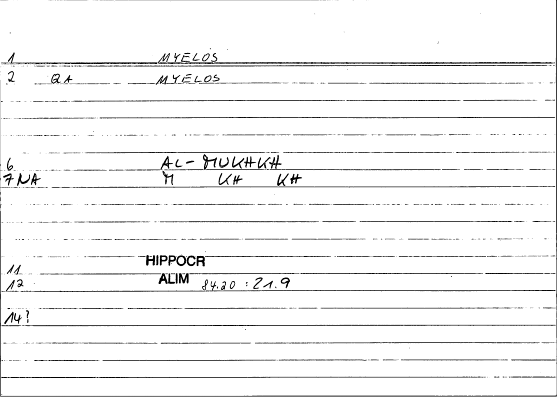 1 MYELOS
2 QA MYELOS
6 AL-MUKHKH
7 NA M KH KH
11 HIPPOCR
12 ALIM 84.20 : 21.9
14?